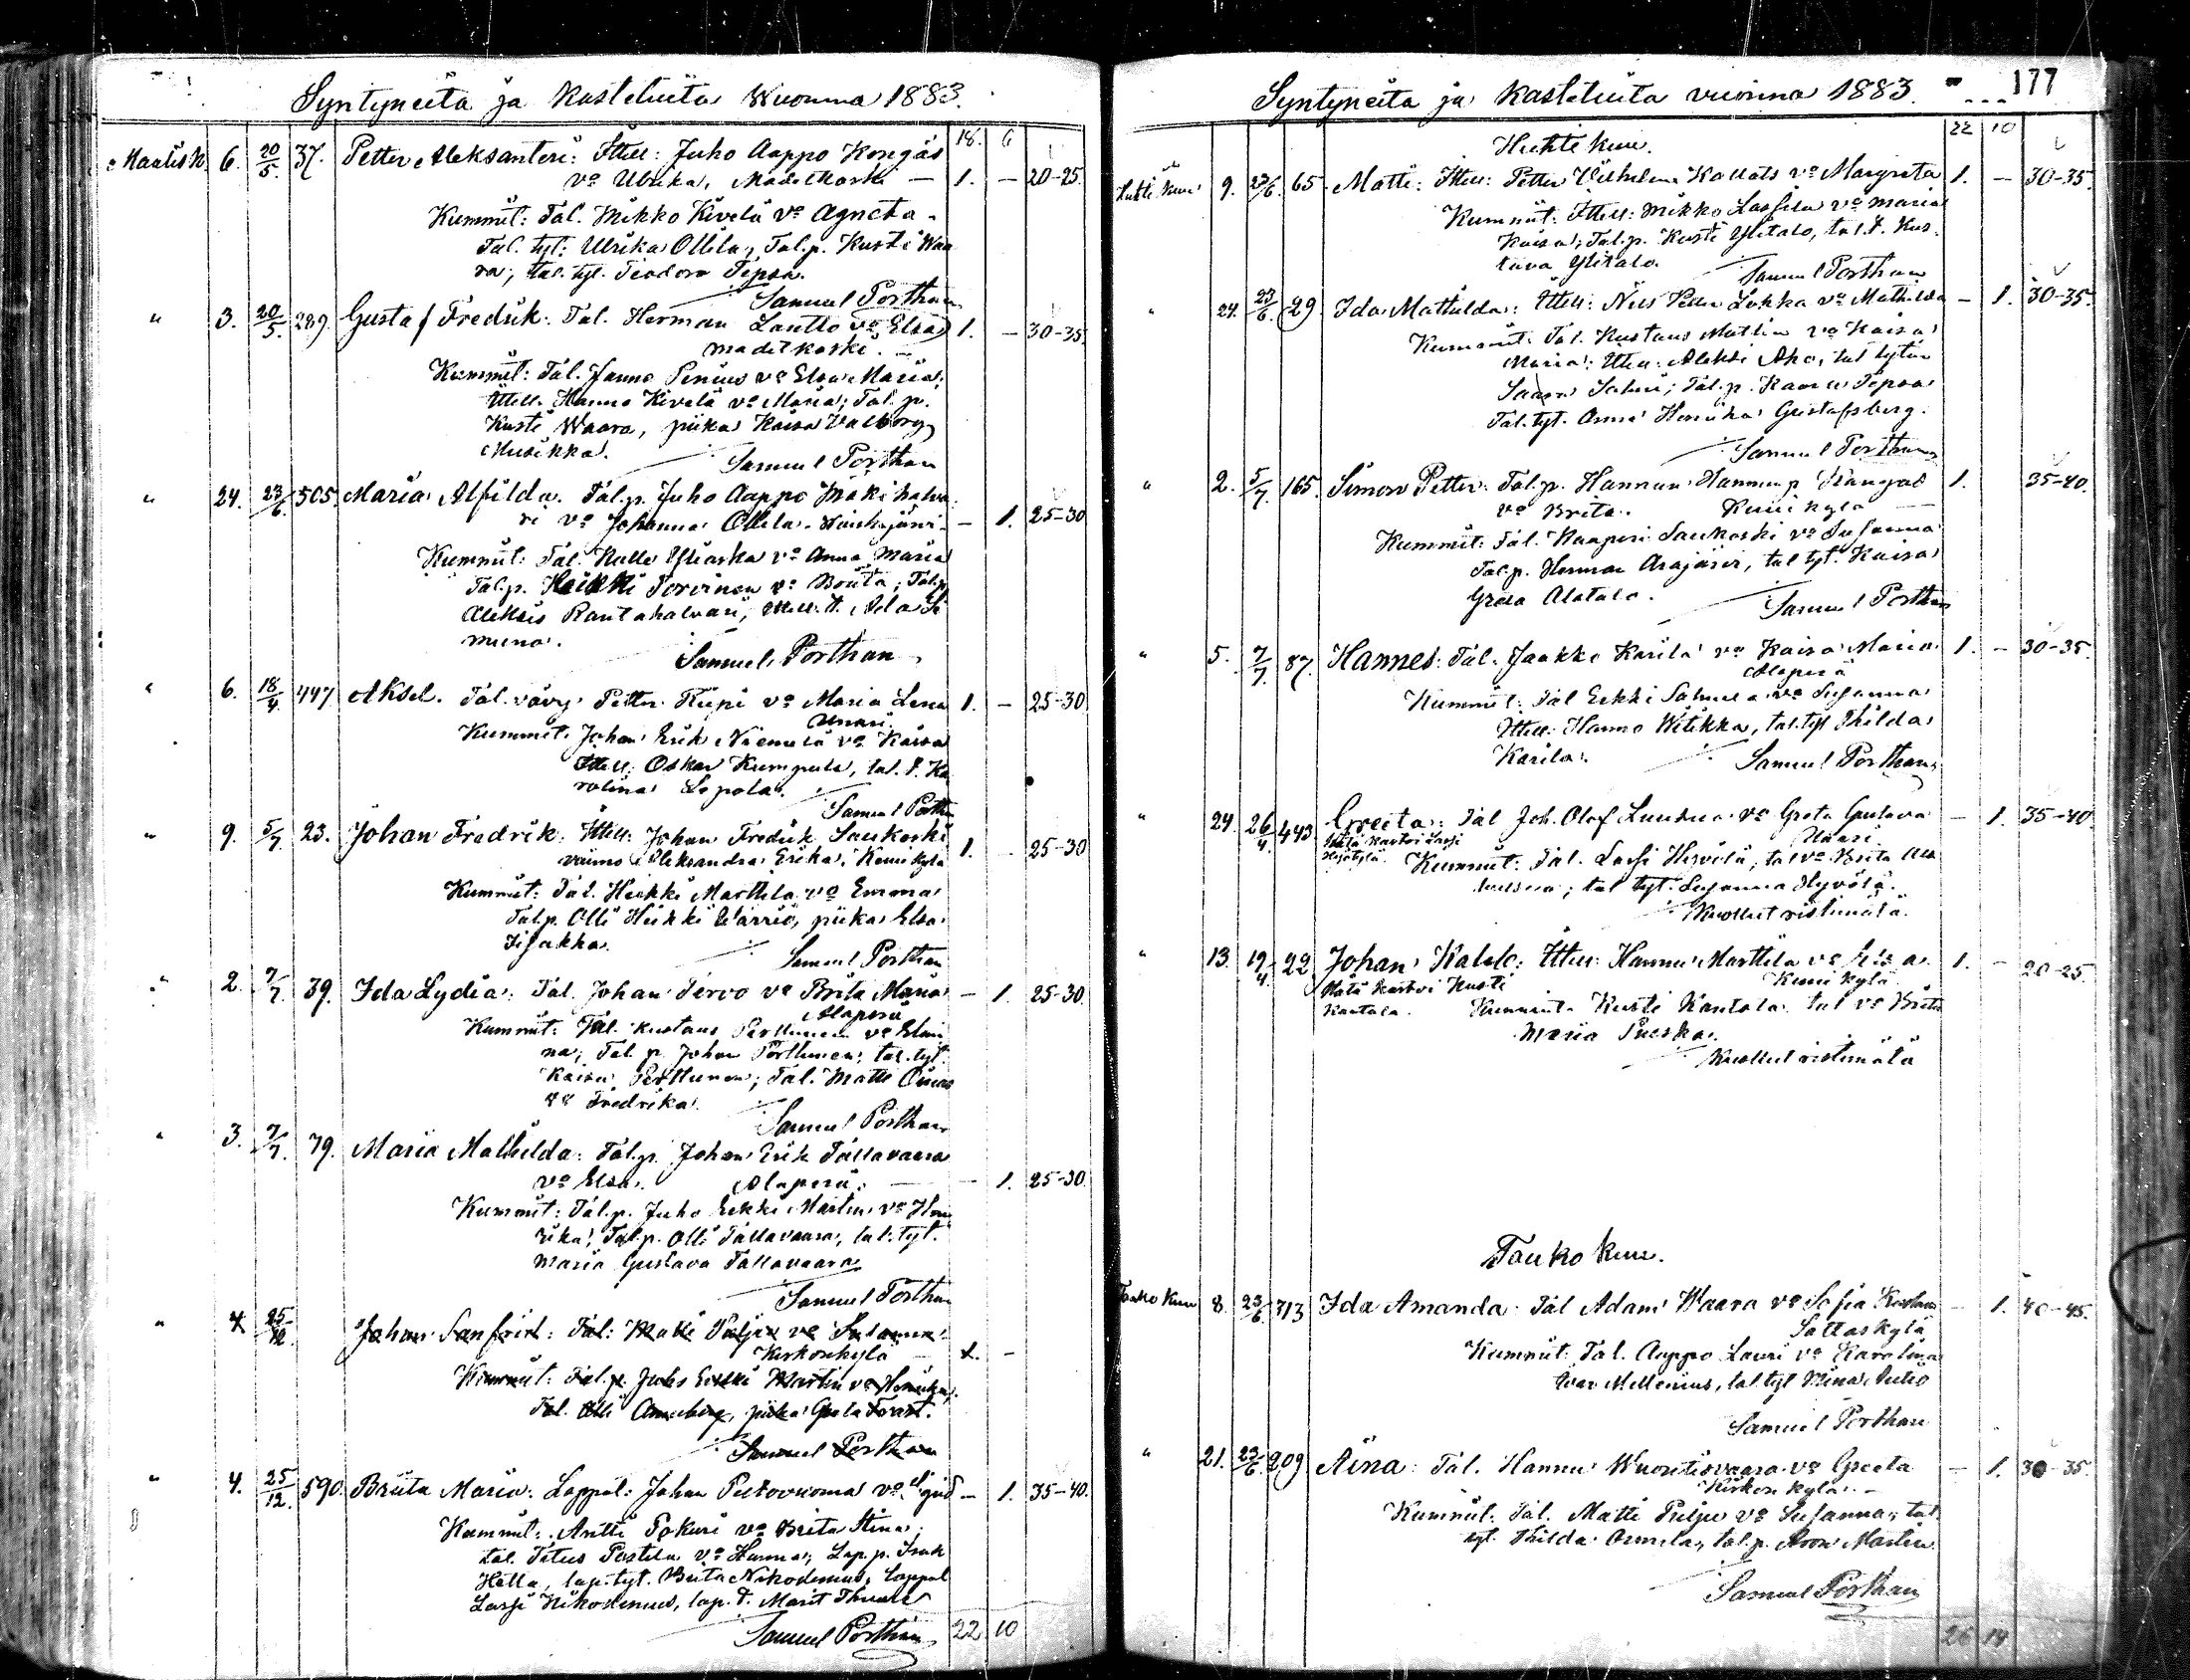 Syntyneitä ja kastetuita Wuonna 1883.
18. 6
Maalis k. 6. 20/5. 37. Petter Aleksanteri: Ittell: Juho Aappo Kongäs
vo Ulrika, Madetkoski — 1. — 20-25.
Kummit: Tal. Mikko Kivelä vo Agneta
Tal. tyt: Ulrika Ollila, Tal.p. Kusti Waa
ra, tal. tyt. Teodora Tepsa.
Samuel Porthan
" 3. 20/5. 289. Gustaf Fredrik: Tal. Herman Lantto vo Elsa 1. — 30-35.
Madetkoski. —
Kummit: Tal. Janne Penius vo Elsa Maria;
Ittell. Hannu Kivelä vo Maria; Tal. p.
Kusti Waara, piika Kaisa Valborg
Musikka.
Samuel Porthan
" 24. 23/6. 505. Maria Alfilda. Tal.p. Juho Aappo Mäkihalva
ri vo Johanna Ollila. — 1. 25-30
Kummit: Tal. Kalle vo Anna Maria
Tal.p. Heikki Torvinen vo Briita; Tal.p
Aleksis Rantahalvari, Ittell. t. Ida
Samuel Porthan
" 6. 18/4. 447 Aksel. Tal. vävy Petter Riipi vo Maria Lena 1. — 25-30
Unari.
Kummit. Johan Erik Niemelä vo Kaisa
Ittell. Oskar Kumpula, tal. t. Ka
rolina Lepola.
Samuel Porthan
" 9. 5/7. 23. Johan Fredrik: Ittell: Johan Fredrik Saukoski
vaimo Aleksandra Erika, Kemikylä 1. 25-30
Kummit: Tal. Heikki Marttila vo Emma
Tal.p. Olli Heikki Wärriö, piika Elsa
Samuel Porthan
" 2. 7/7. 39. Ida Lydia: Tal. Johan Tervo vo Brita Maria — 1. 25-30.
Alaperä
Kummit: Tal. Kustaus Perttunen vo Elvii
na; Tal. p. Johan Perttunen, tal. tyt.
Kaisa Perttunen; Tal. Matti
vo Fredrika.
Samuel Porthan
" 3. 7/7. 79. Maria Mathilda: Tal.p. Johan Erik Tallavaara
vo Elsa. Alaperä. — — 1. 25-30.
Kummit: Tal.p. Juho Erkki Martin vo Hen
rika, Tal.p. Olli Tallavaara, tal. tyt.
Maria Gustava Tallavaara
Samuel Porthan
" 4 25/12. Johan Sanfrid: Tal: Matti Puljo vo Susanna
Kirkonkylä — 1. —
Kummit: Tal.p. Juho Erkki Martin vo Henrika,
Tal. Olli Anneberg, piika Greta
Samuel Porthan
" 4. 25/12. 590. Briita Maria: Lappal: Johan Peltovuoma vo — 1. 35-40.
Kummit: Antti Pokuri vo Brita Stina;
tal. Titus Postila vo Hanna, Lap. p. Isak
Hetta, lap. tyt. Briita Nikodemus, lappal
Lassi Nikodemus, lap. t. Marit
Samuel Porthan 22 10
Syntyneitä ja kastetuita vuonna 1883. 177
Huhtikuu. 22 10
Huhti kuu 9. 23/6. 65. Matti: Ittell: Petter Wilhelm Kallats vo Margreta 1. — 30-35.
Kummit: Ittell: Mikko Lassila vo Maria
Kaisa, Tal.p. Kusti Ylitalo, tal.t. Kus
taava Ylitalo.
Samuel Porthan
" 24. 23/6. 29 Ida Mathilda: Ittell: Nils Petter Lokka vo Mathilda — 1. 30-35.
Kummit: Tal. Kustaus Mattila vo Kaisa
Maria; Ittell. Aleksi Aho, tal tytär
Saara ; Tal. p. Kaarle Tepsa
Tal. tyt. Anna Henrika Gustafsberg.
Samuel Porthan
" 2. 5/7. 165. Simon Petter: Tal.p. Hannun Hannunp. Kangas 1. 35-40.
vo Brita. Kemikylä —
Kummit: Tal. Kaaperi Saukoski vo Susanna
Tal.p. Herman Arajärvi, tal tyt. Kaisa
Greta Alatalo.
Samuel Porthan
" 5. 7/7. 87. Hannes: Tal. Jaakko Karila vo Kaisa Maria 1. — 30-35.
Alaperä
Kummit: Tal Erkki vo Susanna
Ittell: Hannu Witikka, tal.tyt Thilda
Karila.
Samuel Porthan
" 24. 26/4. 443 Greeta: Tal Joh. Olof Luusua vo Greta Gustava — 1. 35-40.
Hätä kastoi Lassi Unari
Hyvölä. Kummit: Tal. Lassi Hyvölä, tal vo Brita
; tal tyt. Susanna Hyvölä.
Kuollut ristimätä.
" 13. 19/4. 22 Johan Kalle: Ittell: Hannu Marttila vo Lisa 1. — 20-25.
Hätä kastoi Kusti Kemikylä
Kantola. Kummit: Kusti Kantola, tal vo Brita
Maria
Kuollut ristimätä
Touko kuu.
Touko kuu 8. 23/6. 313 Ida Amanda: Tal Adam Waara vo Sofia — 1. 40-45.
Sattaskylä
Kummit: Tal. Aappo Lauri vo Karolina
Iivar Mellenius, tal.tyt Miina Autio
Samuel Porthan
" 21. 23/6. 209 Aina: Tal. Hannu Wuontisvaara vo Greeta — 1. 30-35.
Kirkonkylä. —
Kummit: Tal. Matti Puljo vo Susanna, tal.
tyt. Thilda Armila, tal.p. Aron Martin
Samuel Porthan
26 14